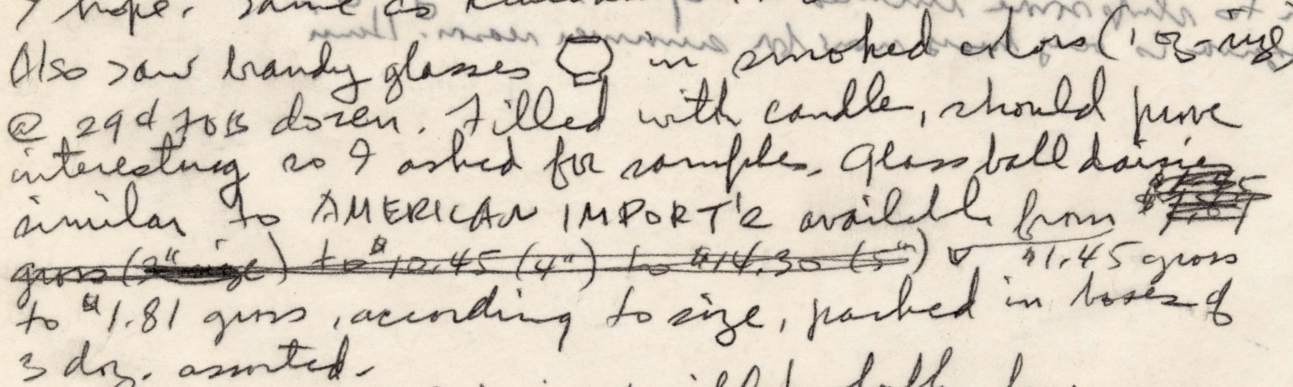 I hope. Same as
Also saw brandy glasses in smoked colors (1 oz-size
@ 29¢ FOB dozen. Filled with candle, should prove
interesting so I asked for samples. Glass ball daisies
similar to AMERICAN IMPORT'S available from
gross (3" size) to $10.45 (4") to $14.30 (5") $1.45 gross
to $1.81 gross, according to size, packed in boxes of
3 doz. assorted.